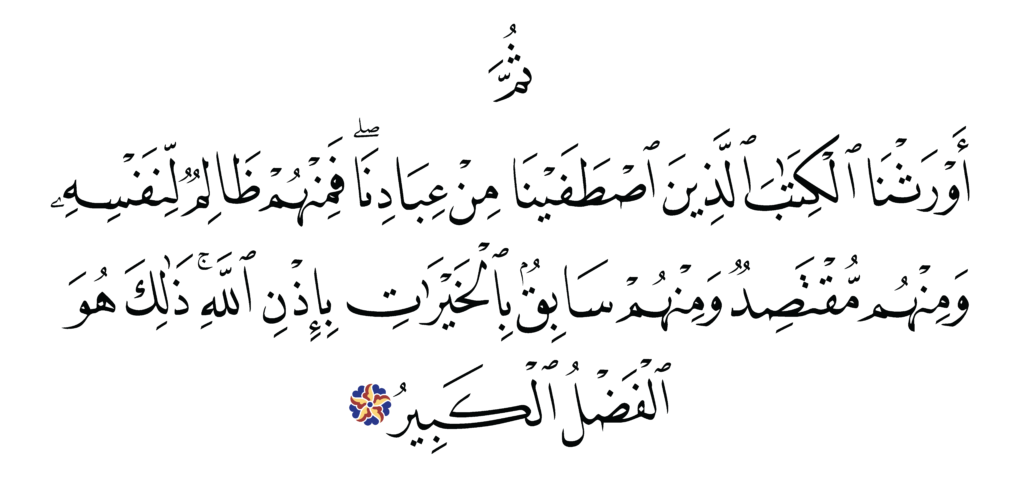 ثُمَّ
أَوْرَثْنَا ٱلْكِتَـٰبَ ٱلَّذِينَ ٱصْطَفَيْنَا مِنْ عِبَادِنَا ۖ فَمِنْهُمْ ظَالِمٌ لِّنَفْسِهِۦ
وَمِنْهُم مُّقْتَصِدٌ وَمِنْهُمْ سَابِقٌۢ بِٱلْخَيْرَٰتِ بِإِذْنِ ٱللَّهِ ۚ ذَٰلِكَ هُوَ
ٱلْفَضْلُ ٱلْكَبِيرُ